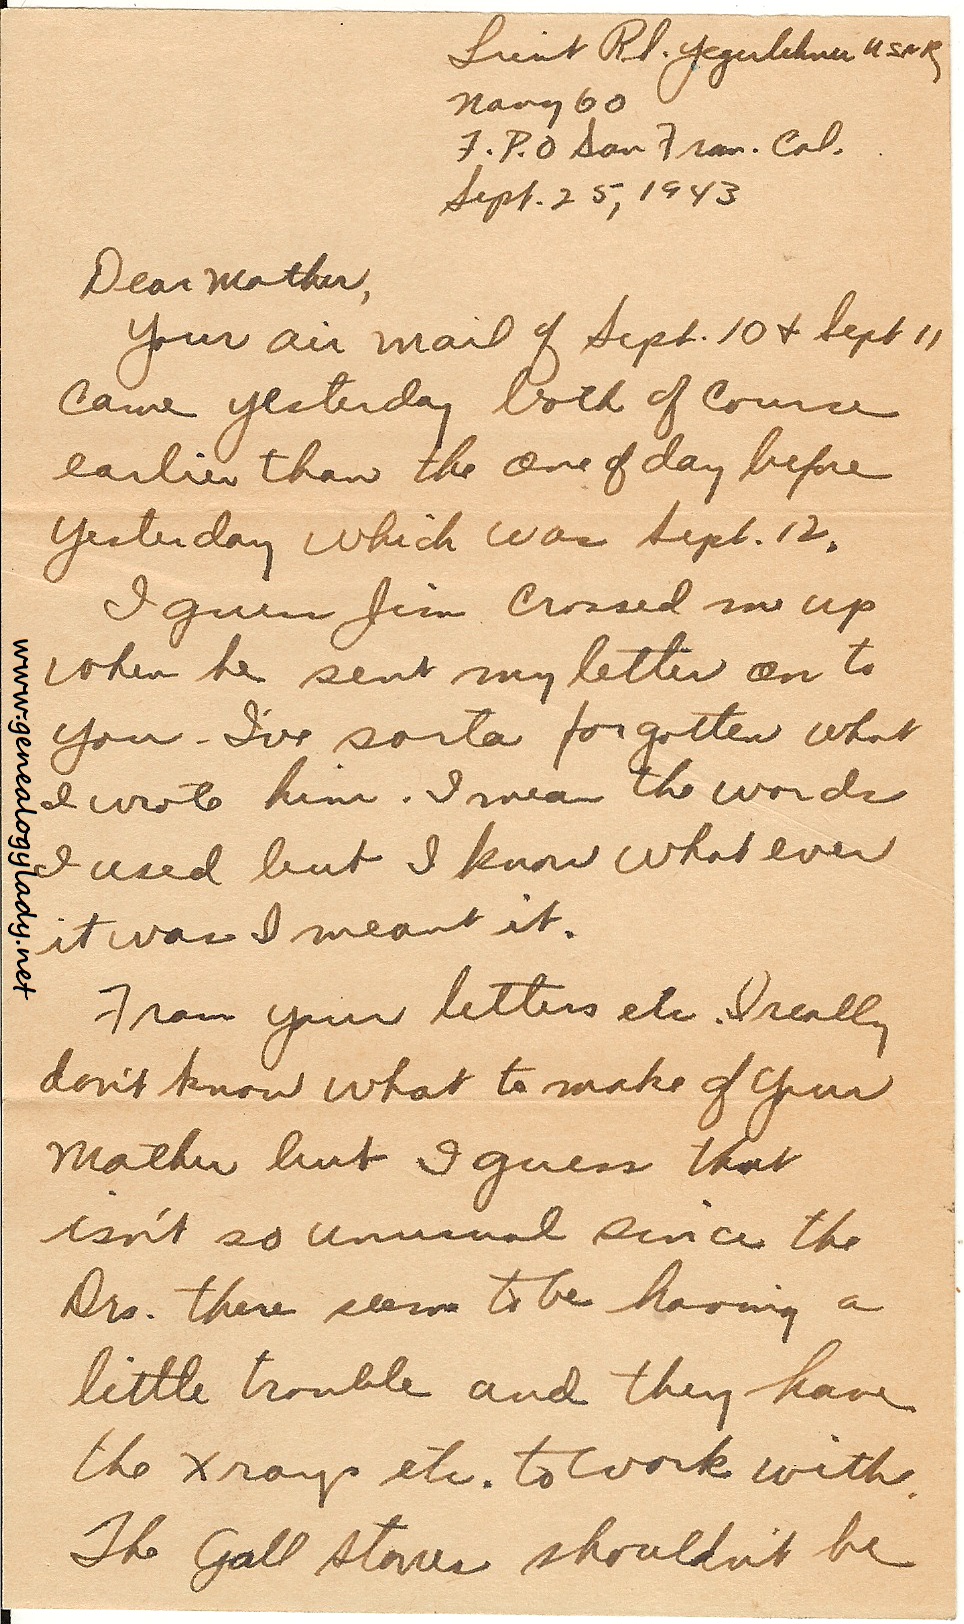 Lieut R.I. Yegerlehner USNR
Navy 60
F.P.O San Fran. Cal.
Sept. 25, 1943
Dear Mother,
Your air mail of Sept. 10 + Sept 11
came yesterday both of course
earlier than the one of day before
yesterday which was Sept. 12.
I guess Jim crossed me up
when he sent my letter on to
you - I've sorta forgotten what
I wrote him. I mean the words
I used but I know what ever
it was I meant it.
From your letters etc. I really
don't know what to make of your
mother but I guess that
isn't so unusual since the
Drs. there seem to be having a
little trouble and they have
the xrays etc. to work with.
The Gall stones shouldn't be
www.genealogylady.net